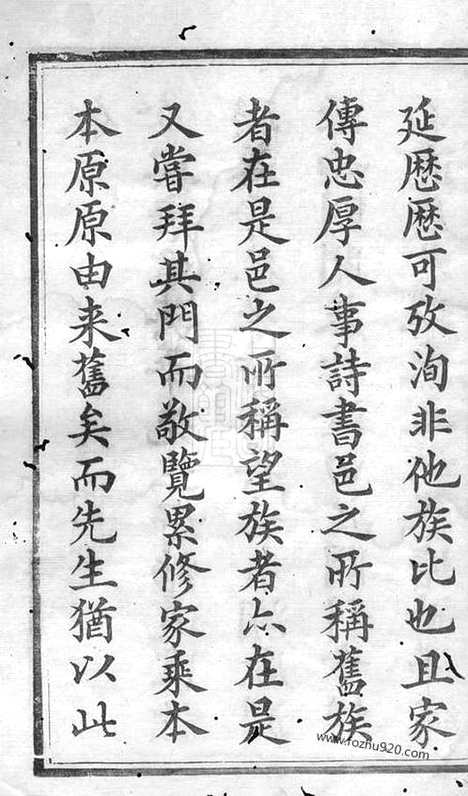 延歷歷可攷洵非他族比也且家
傳忠厚人事詩書邑之所稱舊族
者在是邑之所稱望族者亦在是
又嘗拜其門而敬覽累修家乘本
本原原由来舊矣而先生猶以此
www.rozhu920.com